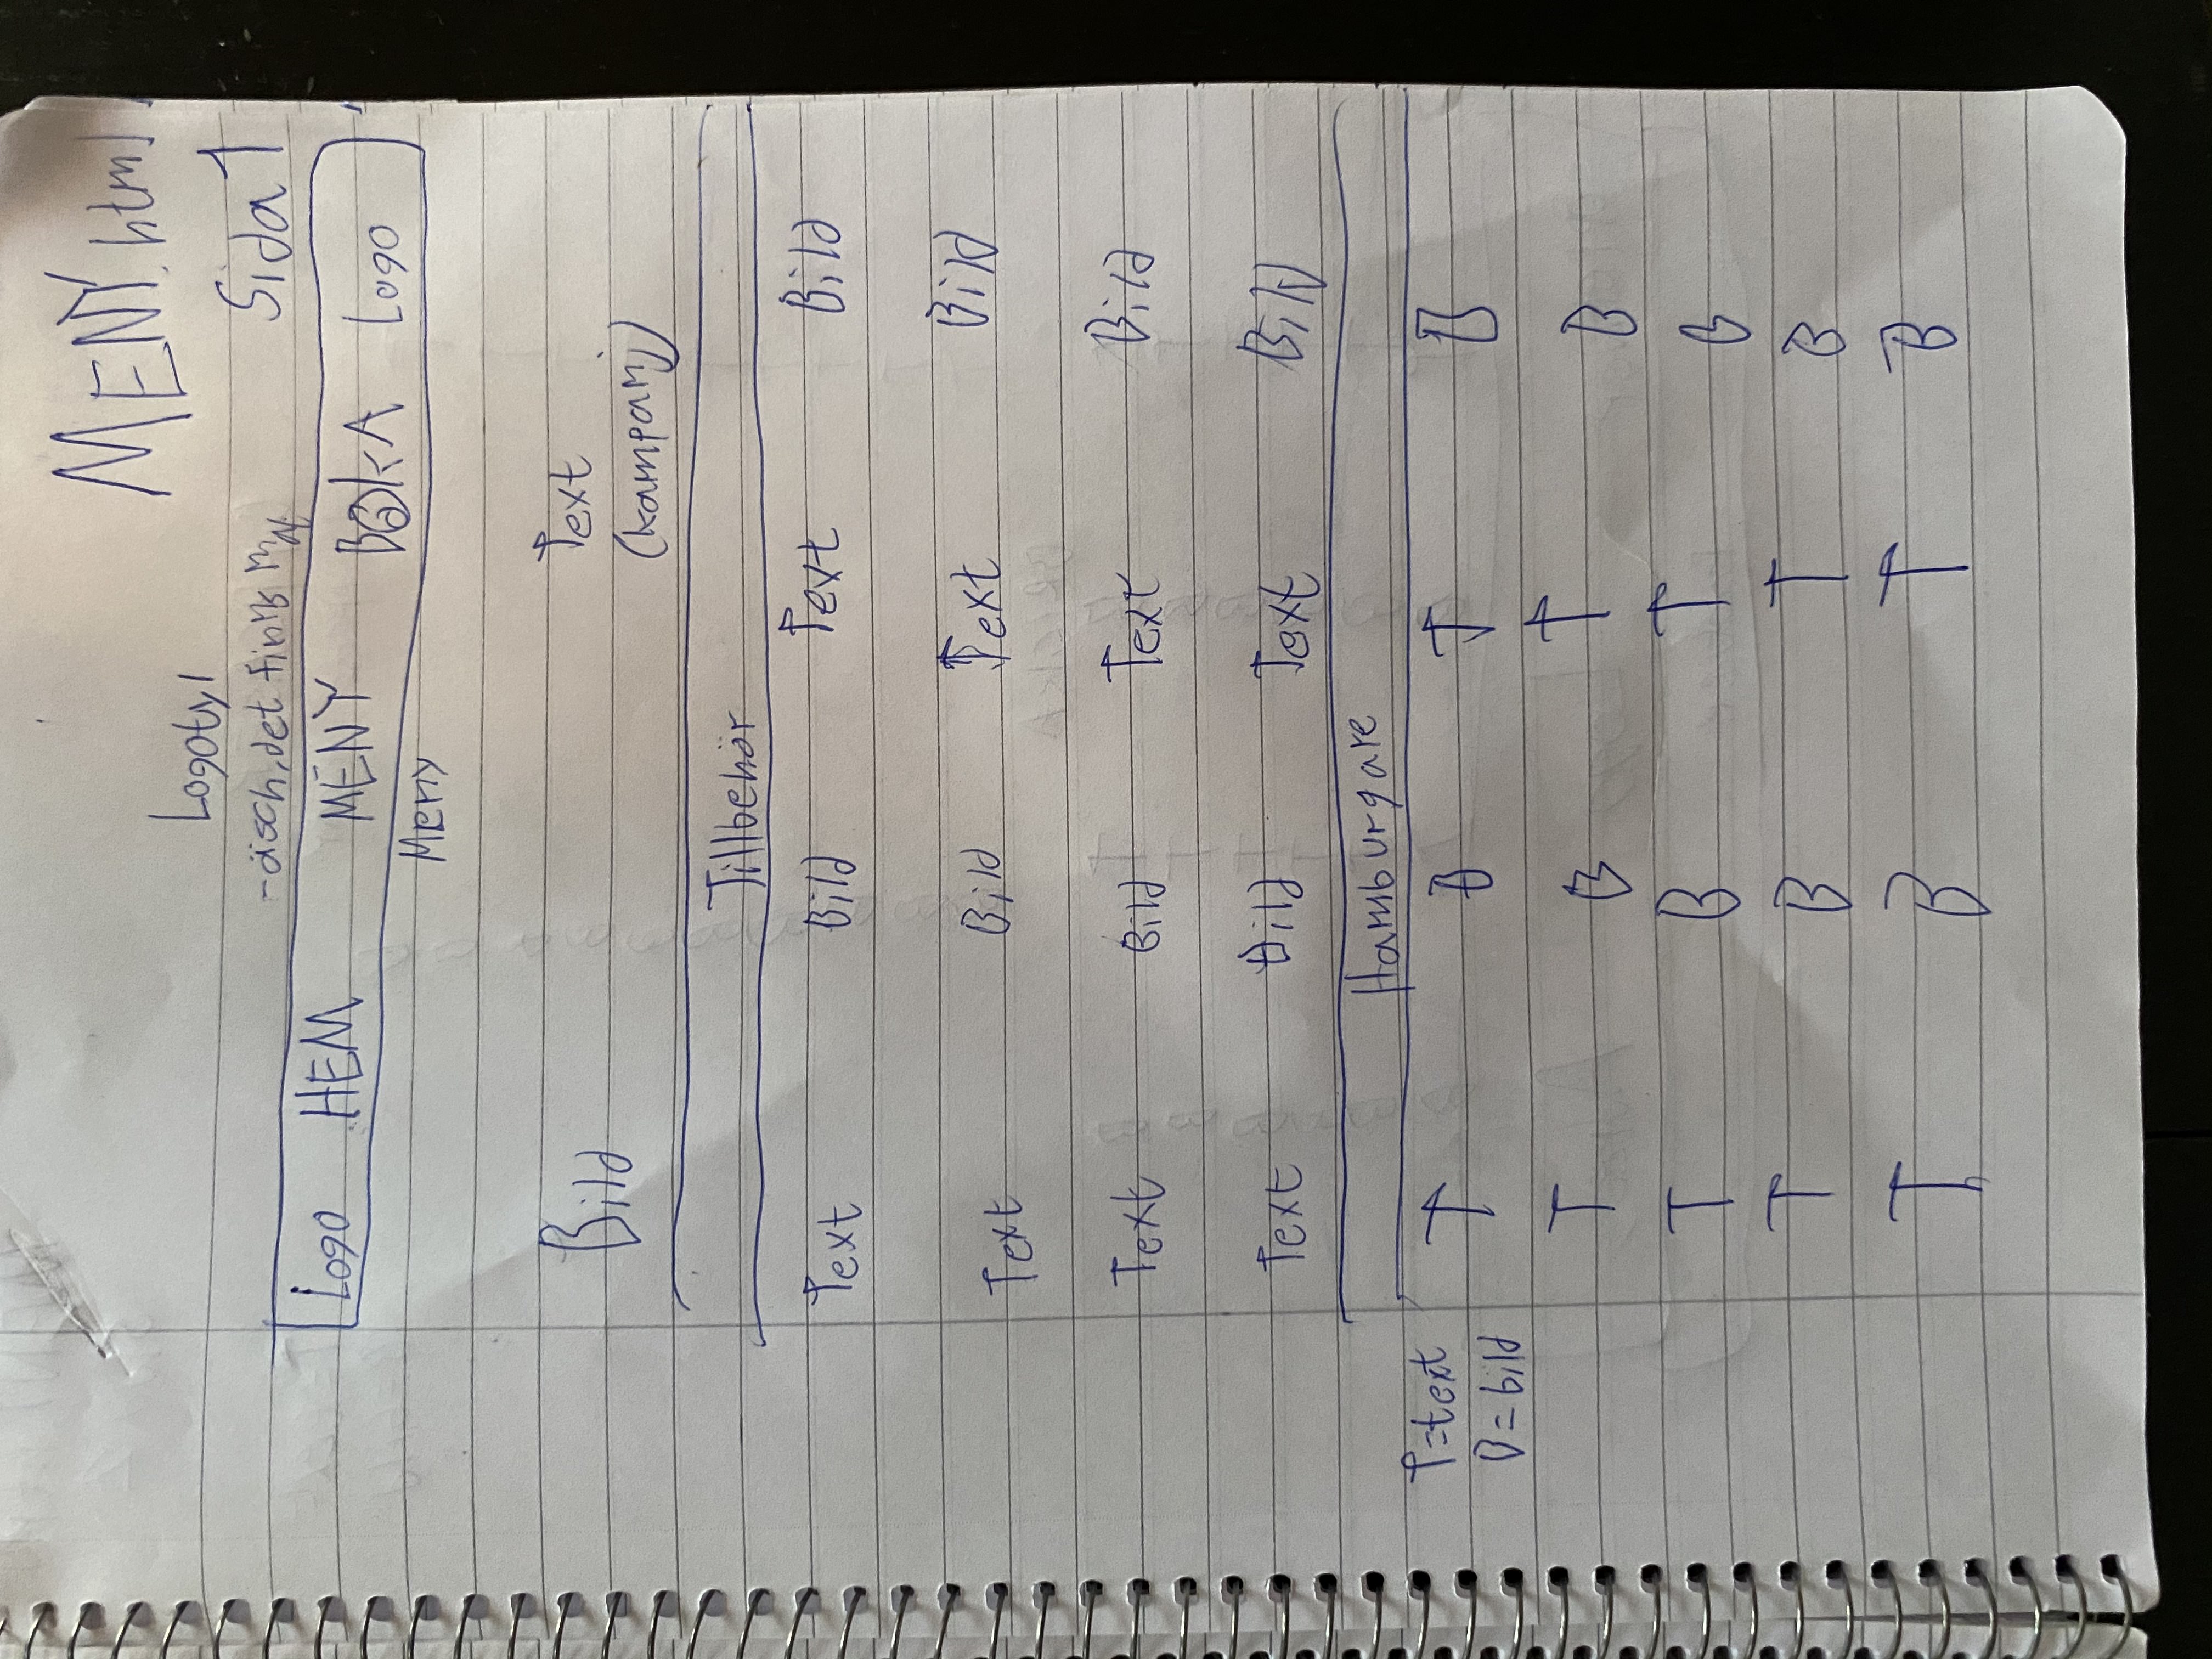 MENY.html
Sida 1
Logotyp
-äsch, det finns
Logo HEM MENY BOKA Logo
Meny
Bild Text
(kampanj)
Tillbehör
Text Bild Text Bild
Text Bild Text Bild
Text Bild Text Bild
Text Bild Text Bild
Hamburgare
T=text
B=bild
T B T B
T B T B
T B T B
T B T B
T B T B